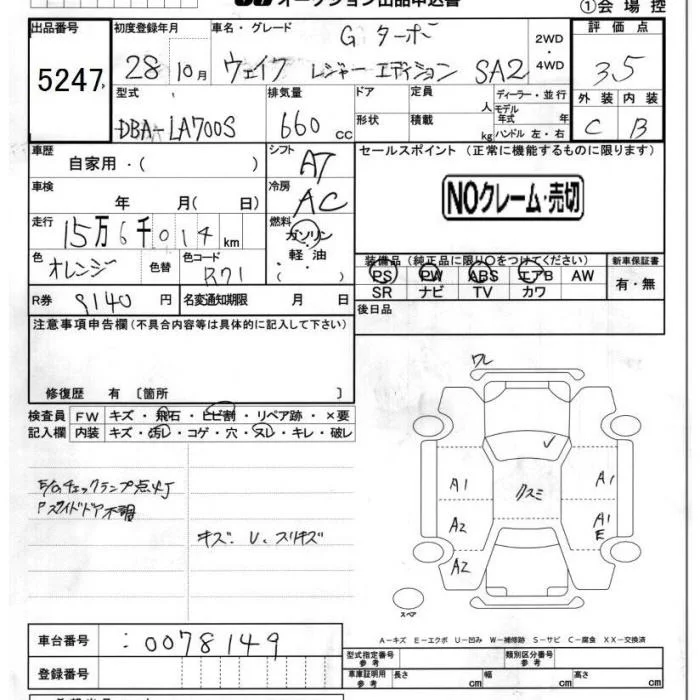 オークション出品申込書
①会場控
出品番号
5247
初度登録年月
28 10月
車名・グレード
G ターボ
ウェイク レジャーエディション SA2
2WD
・
4WD
評価点
3.5
外装 内装
C B
型式
DBA-LA700S
排気量
660 CC
ドア
形状
定員 人
積載 kg
ディーラー・並行
モデル年式 年
ハンドル 左・右
車歴
自家用・( )
シフト
AT
セールスポイント (正常に機能するものに限ります)
NOクレーム・売切
車検
年 月( 日)
冷房
AC
走行
15万6千014km
燃料
ガソリン
・
軽油
( )
色
オレンジ
色替
色コード
R71
装備品 (純正品に限り○をつけてください)
PS PW ABS エアB AW
SR ナビ TV カワ
新車保証書
有・無
R券 9140 円
名変通知期限 月 日
後日品
注意事項申告欄(不具合内容等は具体的に記入して下さい)
修復歴 有 〔箇所 〕
検査員記入欄
FW キズ・飛石・ヒビ割・リペア跡・×要
内装 キズ・汚レ・コゲ・穴・スレ・キレ・破レ
E/Gチェックランプ点灯
Pスライドドア不調
キズ、U、スリキズ
ワレ
A1
クスミ
A1
A2
A1
E
A2
スペア
A−キズ E−エクボ U−凹み W−補修跡 S−サビ C−腐食 XX−交換済
車台番号
:0078149
登録番号
型式指定番号
参考
類別区分番号
参考
車庫証明用
参考
長さ cm 幅 cm 高さ cm